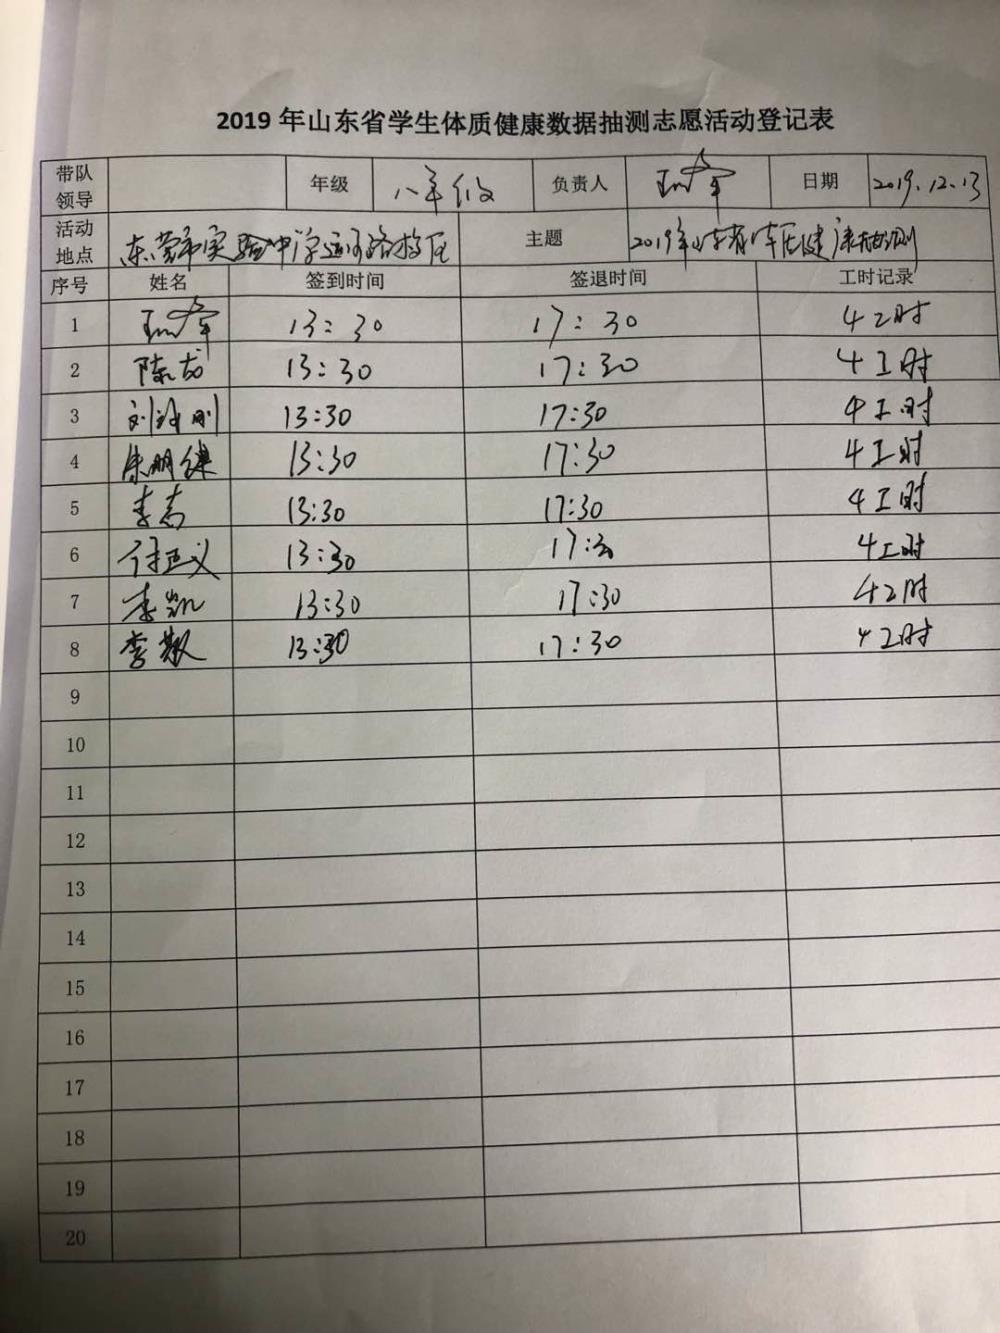 2019年山东省学生体质健康数据抽测志愿活动登记表
带队领导 年级 八年级 负责人 日期 2019.12.13
活动地点 实验中学运河路校区 主题 2019年山东省体质健康抽测
序号 姓名 签到时间 签退时间 工时记录
1 13:30 17:30 4工时
2 陈龙 13:30 17:30 4工时
3 刘 刚 13:30 17:30 4工时
4 朱明 13:30 17:30 4工时
5 李志 13:30 17:30 4工时
6 付正义 13:30 17:30 4工时
7 李凯 13:30 17:30 4工时
8 李敬 13:30 17:30 4工时
9
10
11
12
13
14
15
16
17
18
19
20